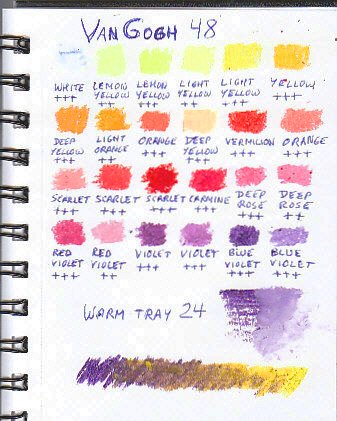 VAN GOGH 48
WHITE LEMON LEMON LIGHT LIGHT YELLOW
+++ YELLOW YELLOW YELLOW YELLOW +++
+++ +++ ++ +++
DEEP LIGHT ORANGE DEEP VERMILION ORANGE
YELLOW ORANGE +++ YELLOW +++ +++
+++ ++ +++
SCARLET SCARLET SCARLET CARMINE DEEP DEEP
+++ +++ +++ +++ ROSE ROSE
+++ +++
RED RED VIOLET VIOLET BLUE BLUE
VIOLET VIOLET +++ +++ VIOLET VIOLET
+++ ++ +++ +++
WARM TRAY 24